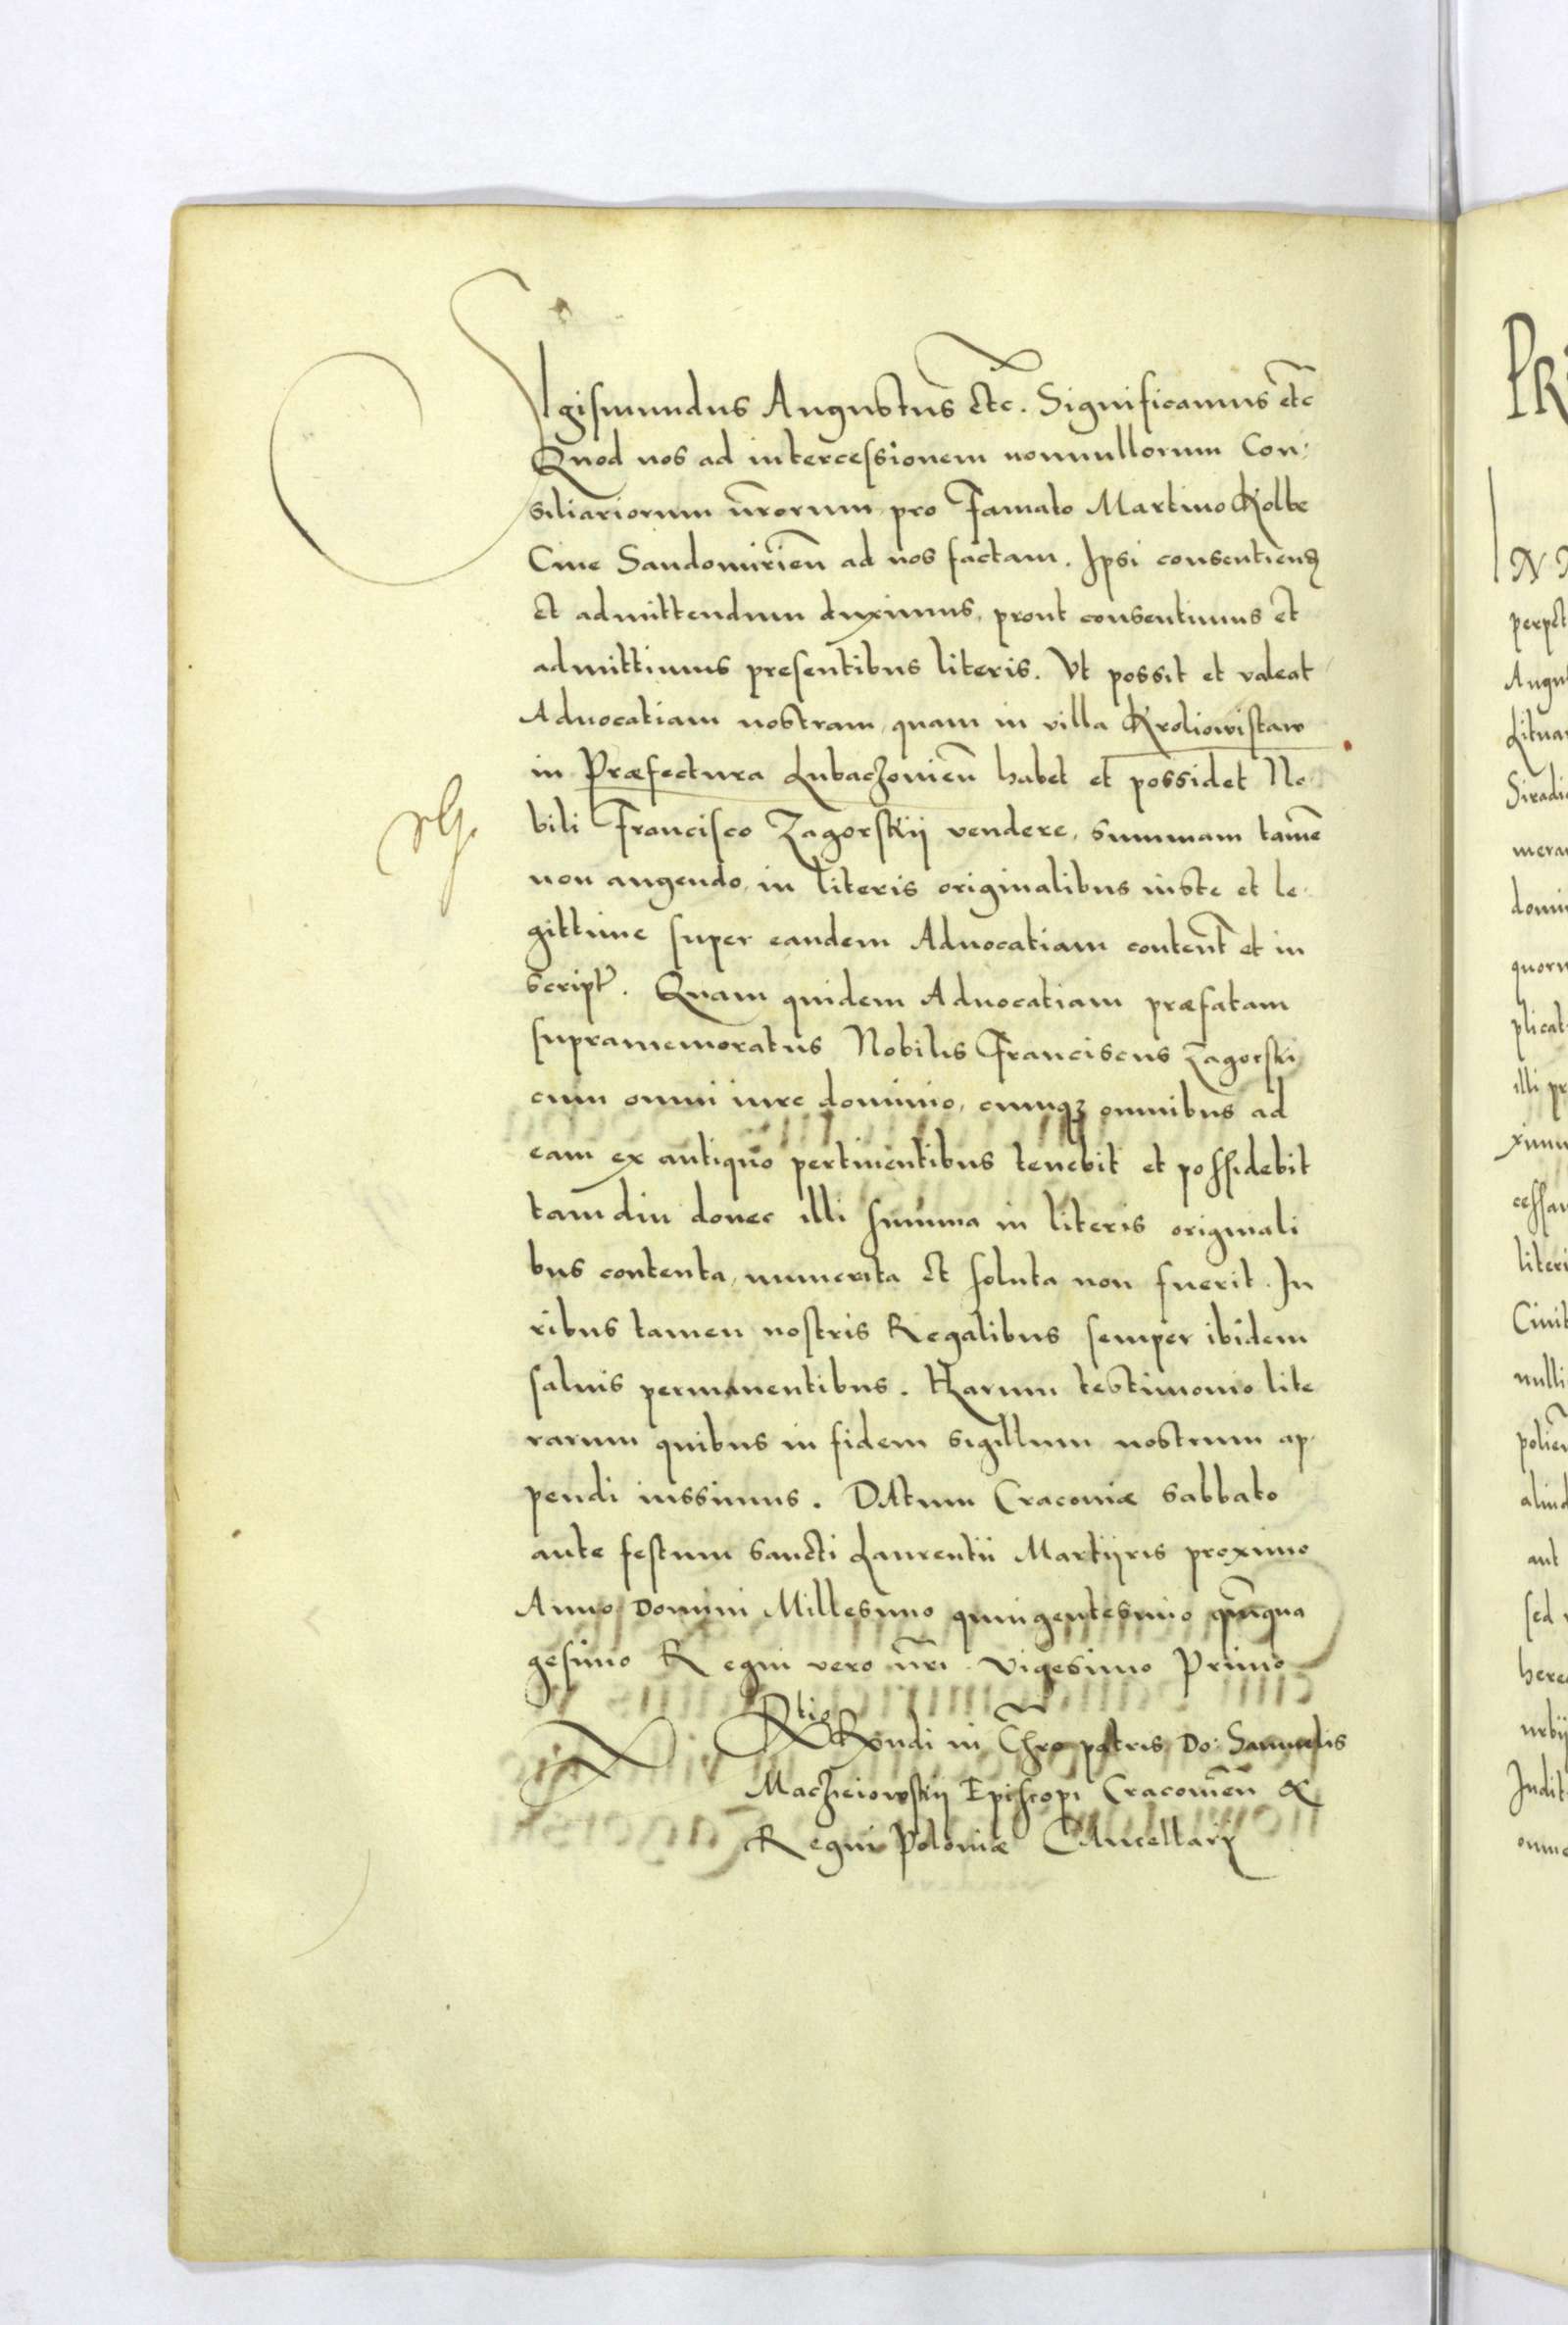 Sigismundus Augustus etc. Significamus etc
Quod nos ad intercessionem nonnullorum Con-
siliariorum nr̃orum pro Famato Martino Kolbe
Ciue Sandomirieñ ad nos factam. Ipsi consentiend
et admittendum duximus, prout consentimus et
admittimus presentibus literis. Vt possit et valeat
Aduocatiam nostram, quam in villa Kroliowistaw
in Præfectura Lubaczouieñ habet et possidet No
bili Francisco Zagorskij vendere, summam tamẽ
non augendo, in literis originalibus iuste et le-
gittime super eandem Aduocatiam conteñt et in
script. Quam quidem Aduocatiam præfatam
supramemoratus Nobilis Franciscus Zagorski
cum omni iure dominio, cumqꝫ omnibus ad
eam ex antiquo pertinentibus tenebit et possidebit
tamdiu donec illi summa in literis originali
bus contenta, numerata et soluta non fuerit. Iu
ribus tamen nostris Regalibus semper ibidem
saluis permanentibus. Harum testimonio lite
rarum quibus in fidem sigillum nostrum ap-
pendi iussimus. DAtum Cracouiæ sabbato
ante festum sancti Laurentii Martijris proximo
Anno Domini Millesimo quingentesimo quinqua
gesimo Regni vero nr̃i Vigesimo Primo
Rtio Rẽndi in Chr̃o patris Do: Samuelis
Maczieiowskij Episcopi Cracouieñ &
Regni Poloniæ CAncellarij